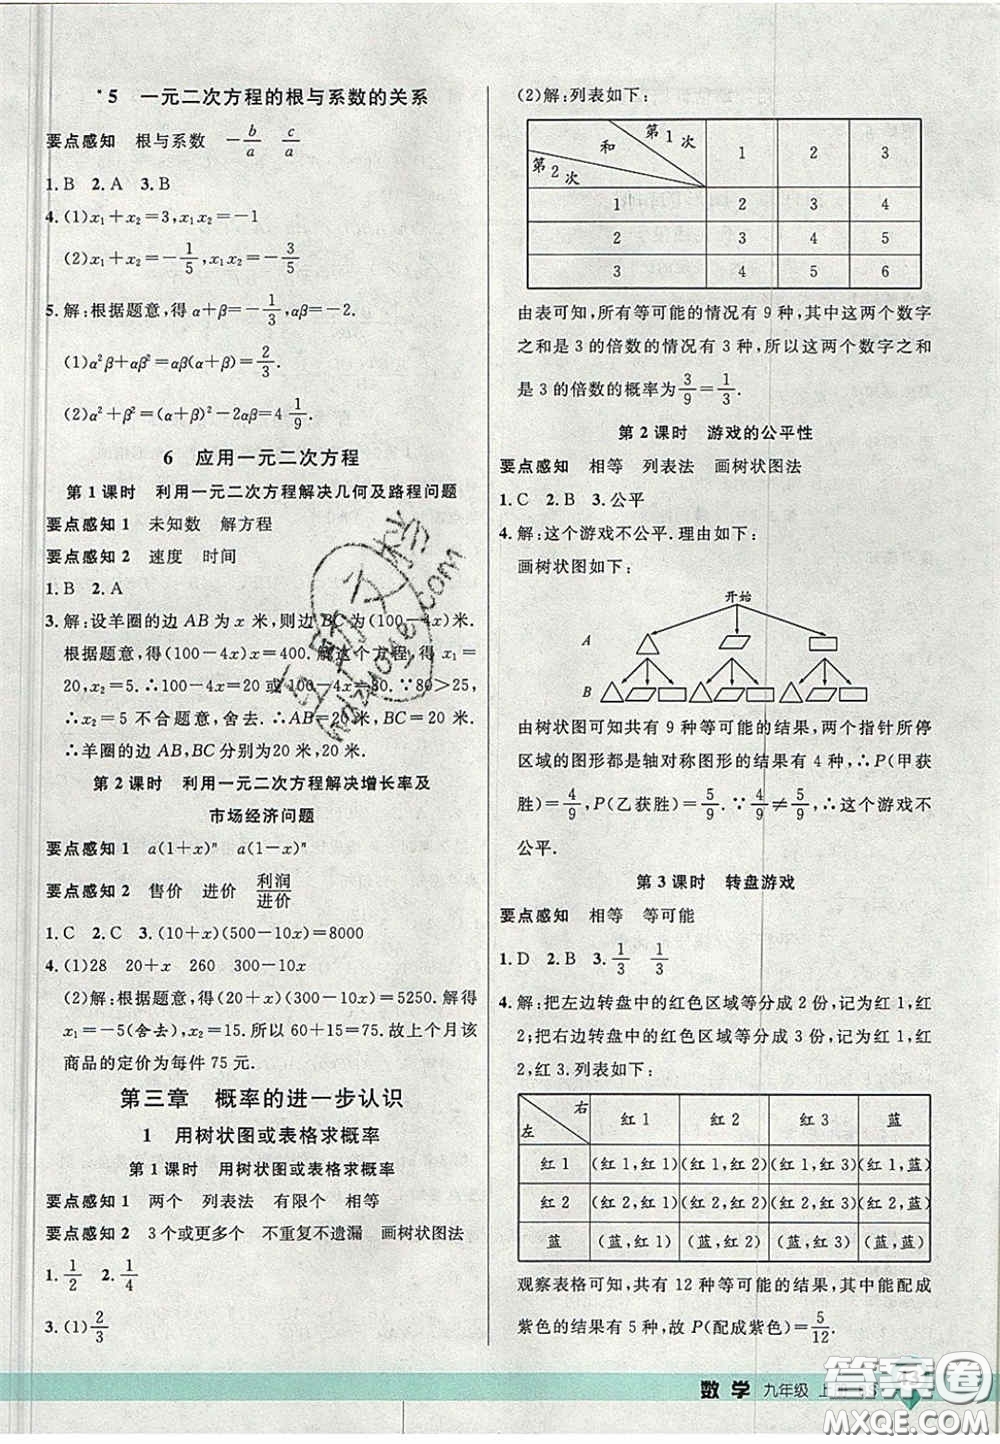 *5 一元二次方程的根与系数的关系
要点感知 根与系数 -b/a c/a
1.B 2.A 3.B
4.(1)x₁+x₂=3,x₁x₂=-1
(2)x₁+x₂=-1/5,x₁x₂=-3/5
5.解:根据题意,得 α+β=-1/3,αβ=-2.
(1)α²β+αβ²=αβ(α+β)=2/3.
(2)α²+β²=(α+β)²-2αβ=4 1/9.
6 应用一元二次方程
第1课时 利用一元二次方程解决几何及路程问题
要点感知1 未知数 解方程
要点感知2 速度 时间
1.B 2.A
3.解:设羊圈的边 AB 为 x 米,则边 BC 为(100-4x)米.
根据题意,得(100-4x)x=400.解这个方程,得 x₁=
20,x₂=5.∴100-4x=20 或100-4x=80.∵80>25,
∴x₂=5 不合题意,舍去.∴AB=20米,BC=20米.
∴羊圈的边 AB,BC 分别为20米,20米.
第2课时 利用一元二次方程解决增长率及
市场经济问题
要点感知1 a(1+x)ⁿ a(1-x)ⁿ
要点感知2 售价 进价 利润/进价
1.C 2.C 3.(10+x)(500-10x)=8000
4.(1)28 20+x 260 300-10x
(2)解:根据题意,得(20+x)(300-10x)=5250.解得
x₁=-5(舍去),x₂=15.所以 60+15=75.故上个月该
商品的定价为每件 75 元.
第三章 概率的进一步认识
1 用树状图或表格求概率
第1课时 用树状图或表格求概率
要点感知1 两个 列表法 有限个 相等
要点感知2 3个或更多个 不重复不遗漏 画树状图法
1.1/2 2.1/4
3.(1)2/3
(2)解:列表如下:
第2次 和 第1次 1 2 3
1 2 3 4
2 3 4 5
3 4 5 6
由表可知,所有等可能的情况有 9 种,其中这两个数字
之和是 3 的倍数的情况有 3 种,所以这两个数字之和
是 3 的倍数的概率为3/9=1/3.
第2课时 游戏的公平性
要点感知 相等 列表法 画树状图法
1.C 2.B 3.公平
4.解:这个游戏不公平.理由如下:
画树状图如下:
开始
A
B
由树状图可知共有 9 种等可能的结果,两个指针所停
区域的图形都是轴对称图形的结果有 4 种,∴P(甲获
胜)=4/9,P(乙获胜)=5/9.∵4/9≠5/9,∴这个游戏不
公平.
第3课时 转盘游戏
要点感知 相等 等可能
1.D 2.B 3.1/3 1/3
4.解:把左边转盘中的红色区域等分成 2 份,记为红 1,红
2;把右边转盘中的红色区域等分成 3 份,记为红 1,红
2,红 3.列表如下:
左 右 红1 红2 红3 蓝
红1 (红1,红1) (红1,红2) (红1,红3) (红1,蓝)
红2 (红2,红1) (红2,红2) (红2,红3) (红2,蓝)
蓝 (蓝,红1) (蓝,红2) (蓝,红3) (蓝,蓝)
观察表格可知,共有 12 种等可能的结果,其中能配成
紫色的结果有 5 种,故 P(配成紫色)=5/12.
数学 九年级 上
答案圈
MXQE.COM